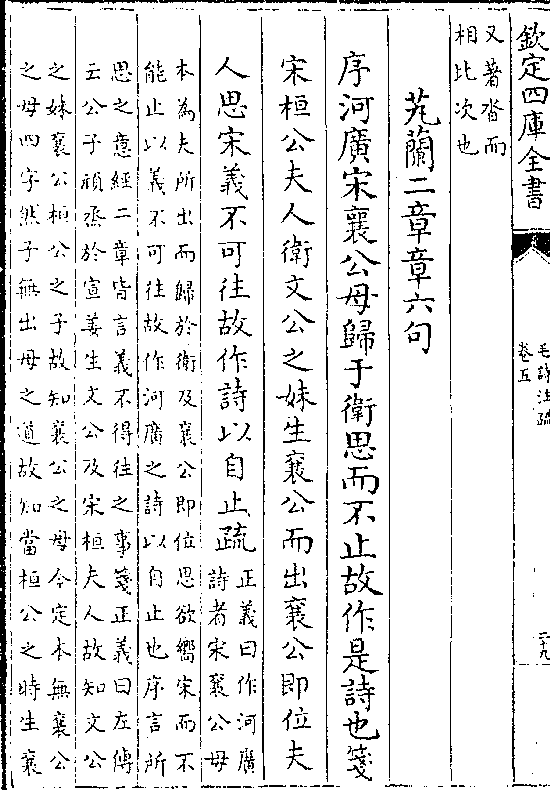 欽定四庫全書
毛詩注疏
卷五
二十九
又著沓而
相比次也
芄蘭二章章六句
序河廣宋襄公母歸于衛思而不止故作是詩也箋
宋桓公夫人衛文公之妹生襄公而出襄公即位夫
人思宋義不可往故作詩以自止疏
正義曰作河廣
詩者宋襄公母
本為夫所出而歸於衛及襄公即位思欲嚮宋而不
能止以義不可往故作河廣之詩以自止也序言所
思之意經二章皆言義不得往之事箋正義曰左傳
云公子頑烝於宣姜生文公及宋桓夫人故知文公
之妹襄公桓公之子故知襄公之母今定本無襄公
之母四字然子無出母之道故知當桓公之時生襄